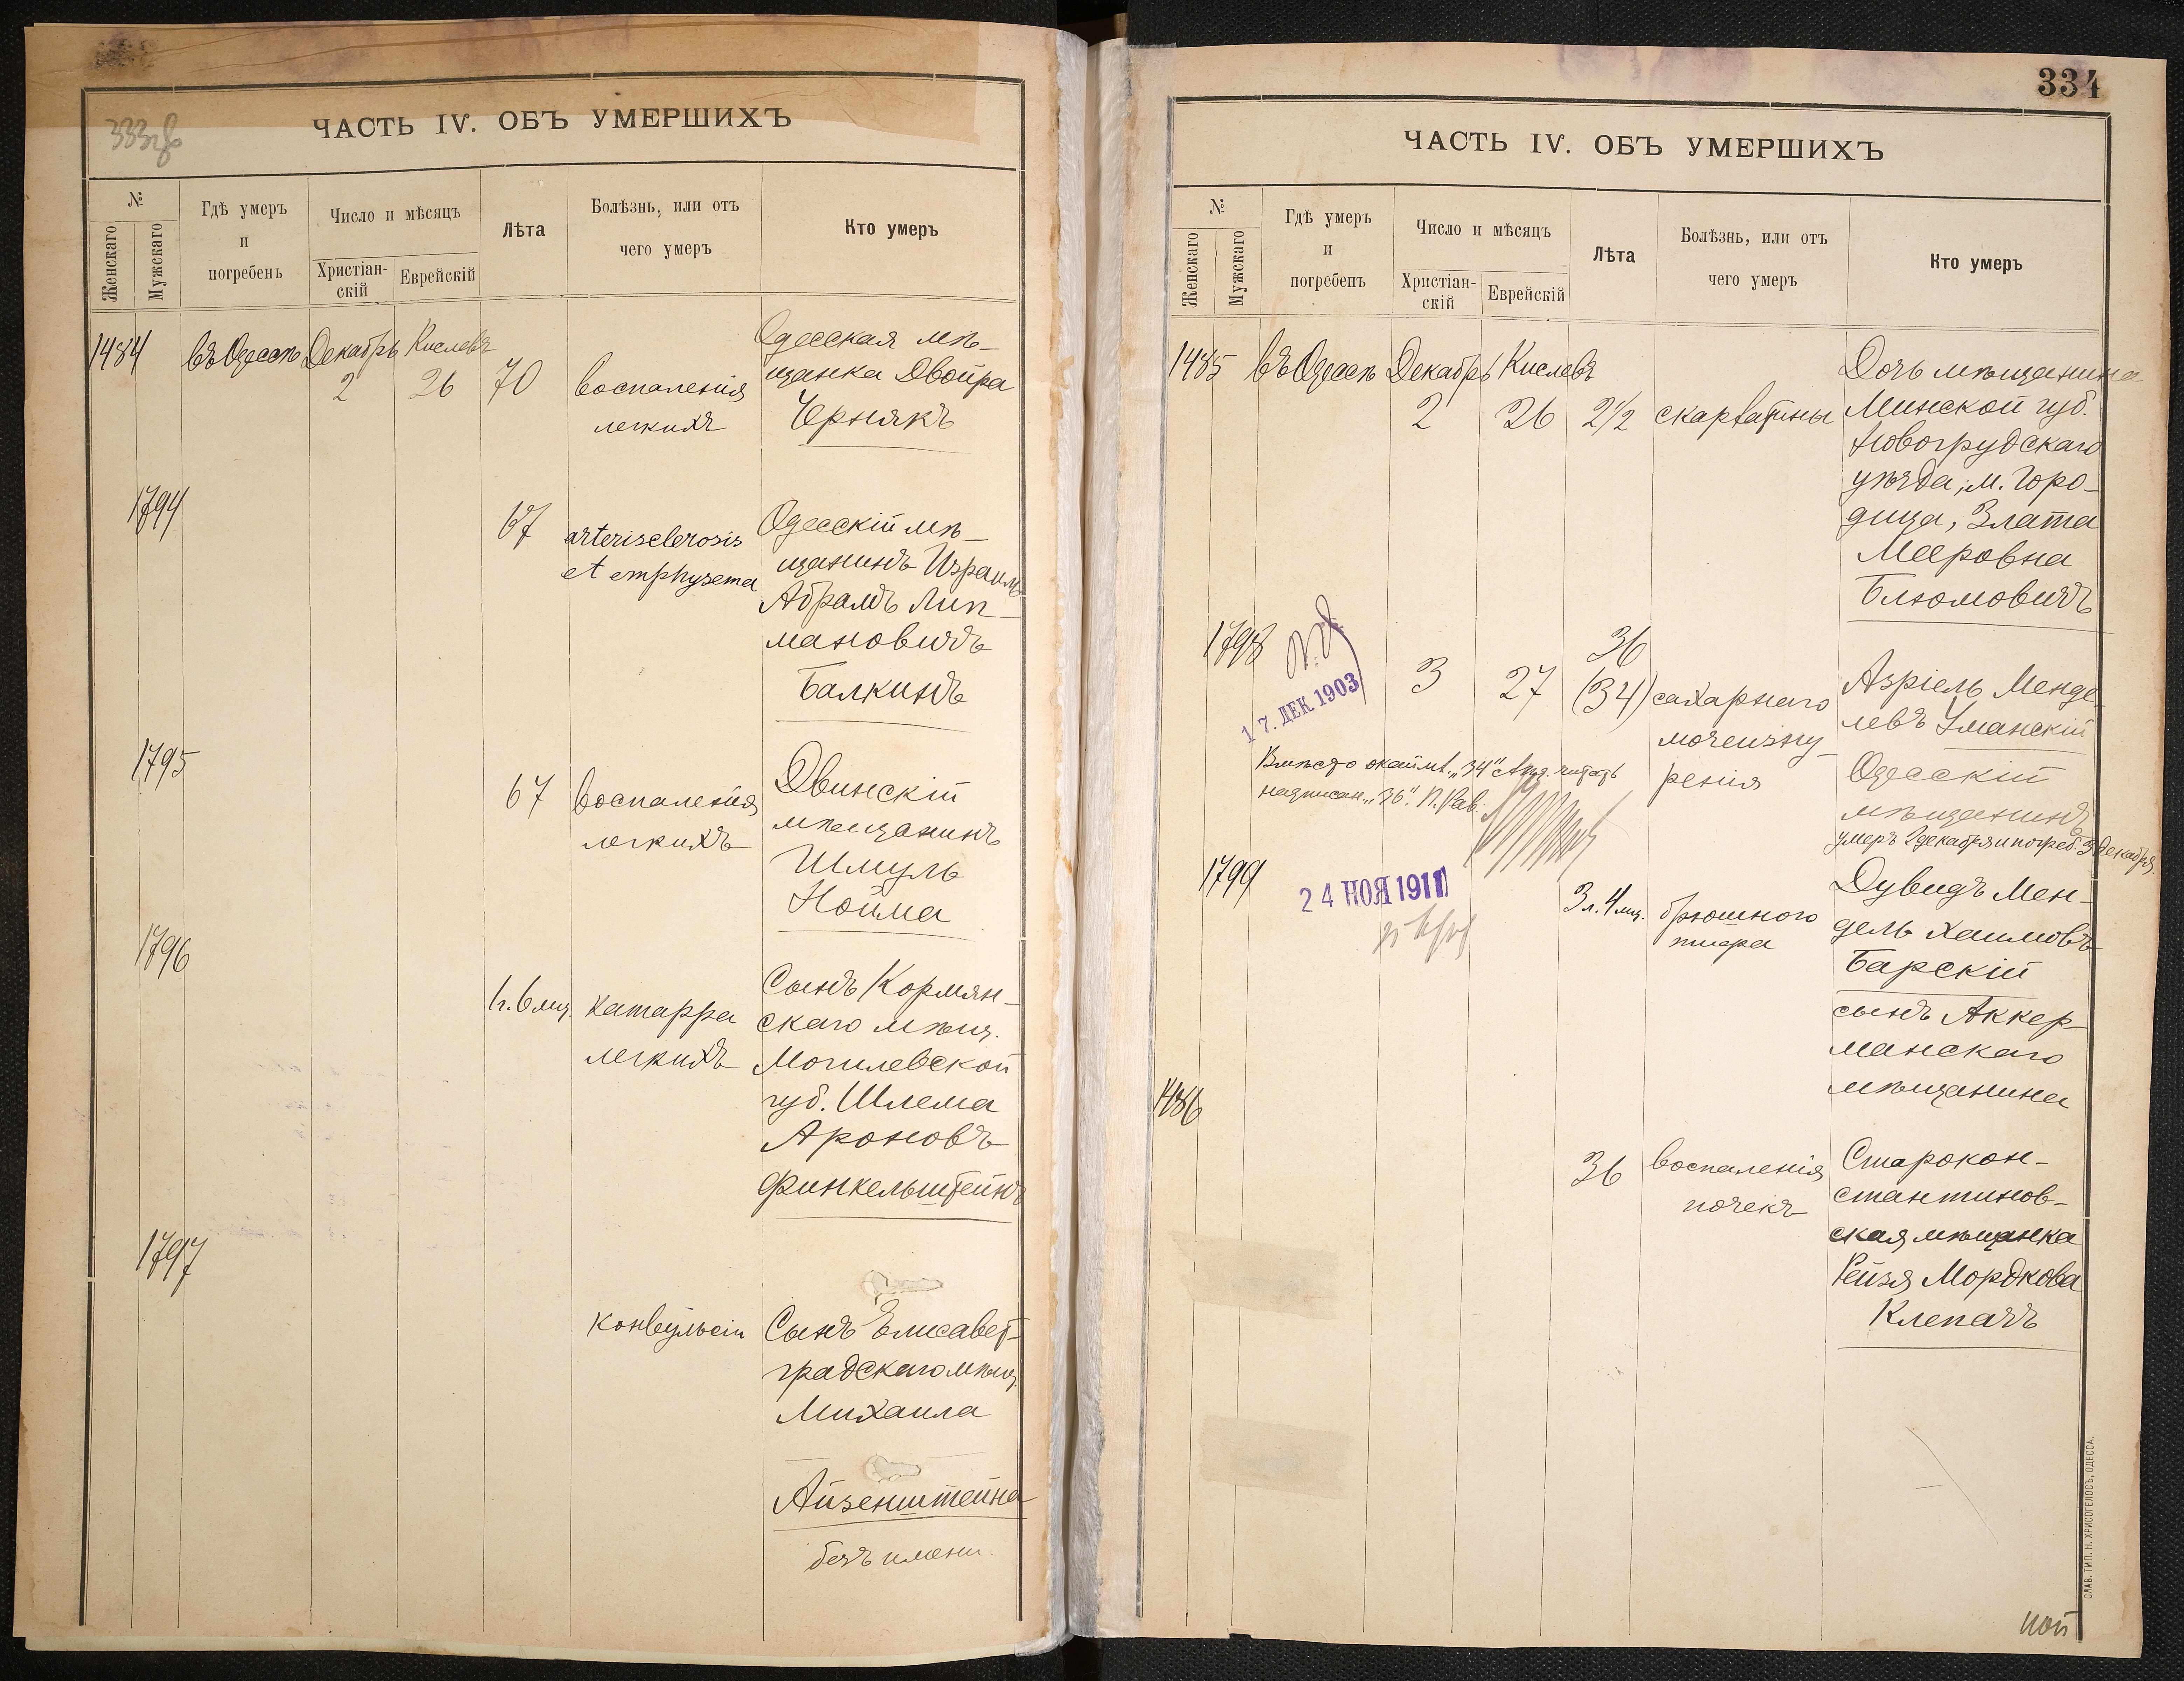 333 об
ЧАСТЬ IV. ОБЪ УМЕРШИХЪ
№
Женскаго
Мужскаго
Гдѣ умеръ
и
погребенъ
Число и мѣсяцъ
Христіан-
скій
Еврейскій
Лѣта
Болѣзнь, или отъ
чего умеръ
Кто умеръ
1484
въ Одессѣ
Декабрь
2
Кислевъ
26
70
воспаленія
легкихъ
Одесская мѣ-
щанка Двойра
Чернякъ
1794
67
arterisclerosis
et emphysema
Одесскій мѣ-
щанинъ Израиль
Абрамъ Лип-
мановичъ
Балкинъ
1795
67
воспаленія
легкихъ
Двинскій
мѣщанинъ
Шмуль
Нойма
1796
1 г. 6 мц.
катарра
легкихъ
Сынъ Кормян-
скаго мѣщ.
Могилевской
губ. Шлема
Ароновъ
Финкельштейнъ
1797
конвульсіи
Сынъ Елисавет-
градскаго мѣщ.
Михаила
Айзенштейна
безъ имени.
334
ЧАСТЬ IV. ОБЪ УМЕРШИХЪ
№
Женскаго
Мужскаго
Гдѣ умеръ
и
погребенъ
Число и мѣсяцъ
Христіан-
скій
Еврейскій
Лѣта
Болѣзнь, или отъ
чего умеръ
Кто умеръ
1485
въ Одессѣ
Декабрь
2
Кислевъ
26
2 1/2
скарлатины
Дочь мѣщанина
Минской губ.
Новогрудскаго
уѣзда, м. Горо-
дища, Злата
Мееровна
Блюмовичъ
1798
17. ДЕК 1903
3
27
36
(34)
сахарнаго
мочеизну-
ренія
Азріель Менде-
левъ Уманскій
Одесскій
мѣщанинъ
умеръ 2 декабря и погреб. 3 декабря
Вмѣсто окаймл. "34" читать
надписан. "36". П. Рав.
1799
24 НОЯ 1911
3 л. 4 мц.
брюшного
тифа
Дувидъ Мен-
дель Хаимовъ
Барскій
сынъ Аккер-
манскаго
мѣщанина
1486
36
воспаленія
почекъ
Старокон-
стантинов-
ская мѣщанка
Рейзя Мордкова
Клепачъ
СЛАВ. ТИП. Н. ХРИСОГЕЛОСЪ, ОДЕССА.